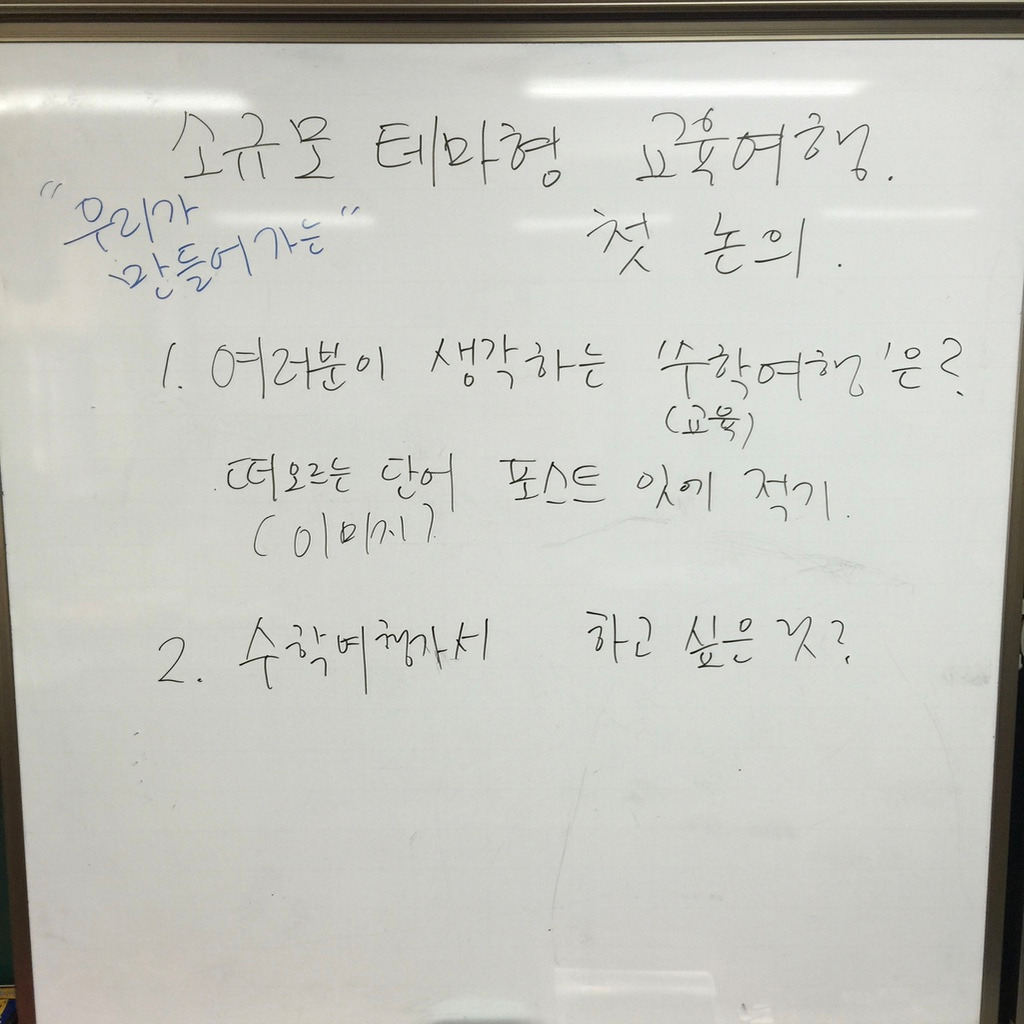 소규모 테마형 교육여행.
"우리가
만들어가는"
첫 논의.
1. 여러분이 생각하는 '수학여행'은?
(교육)
떠오르는 단어 포스트 잇에 적기.
(이미지)
2. 수학여행가서 하고 싶은 것?